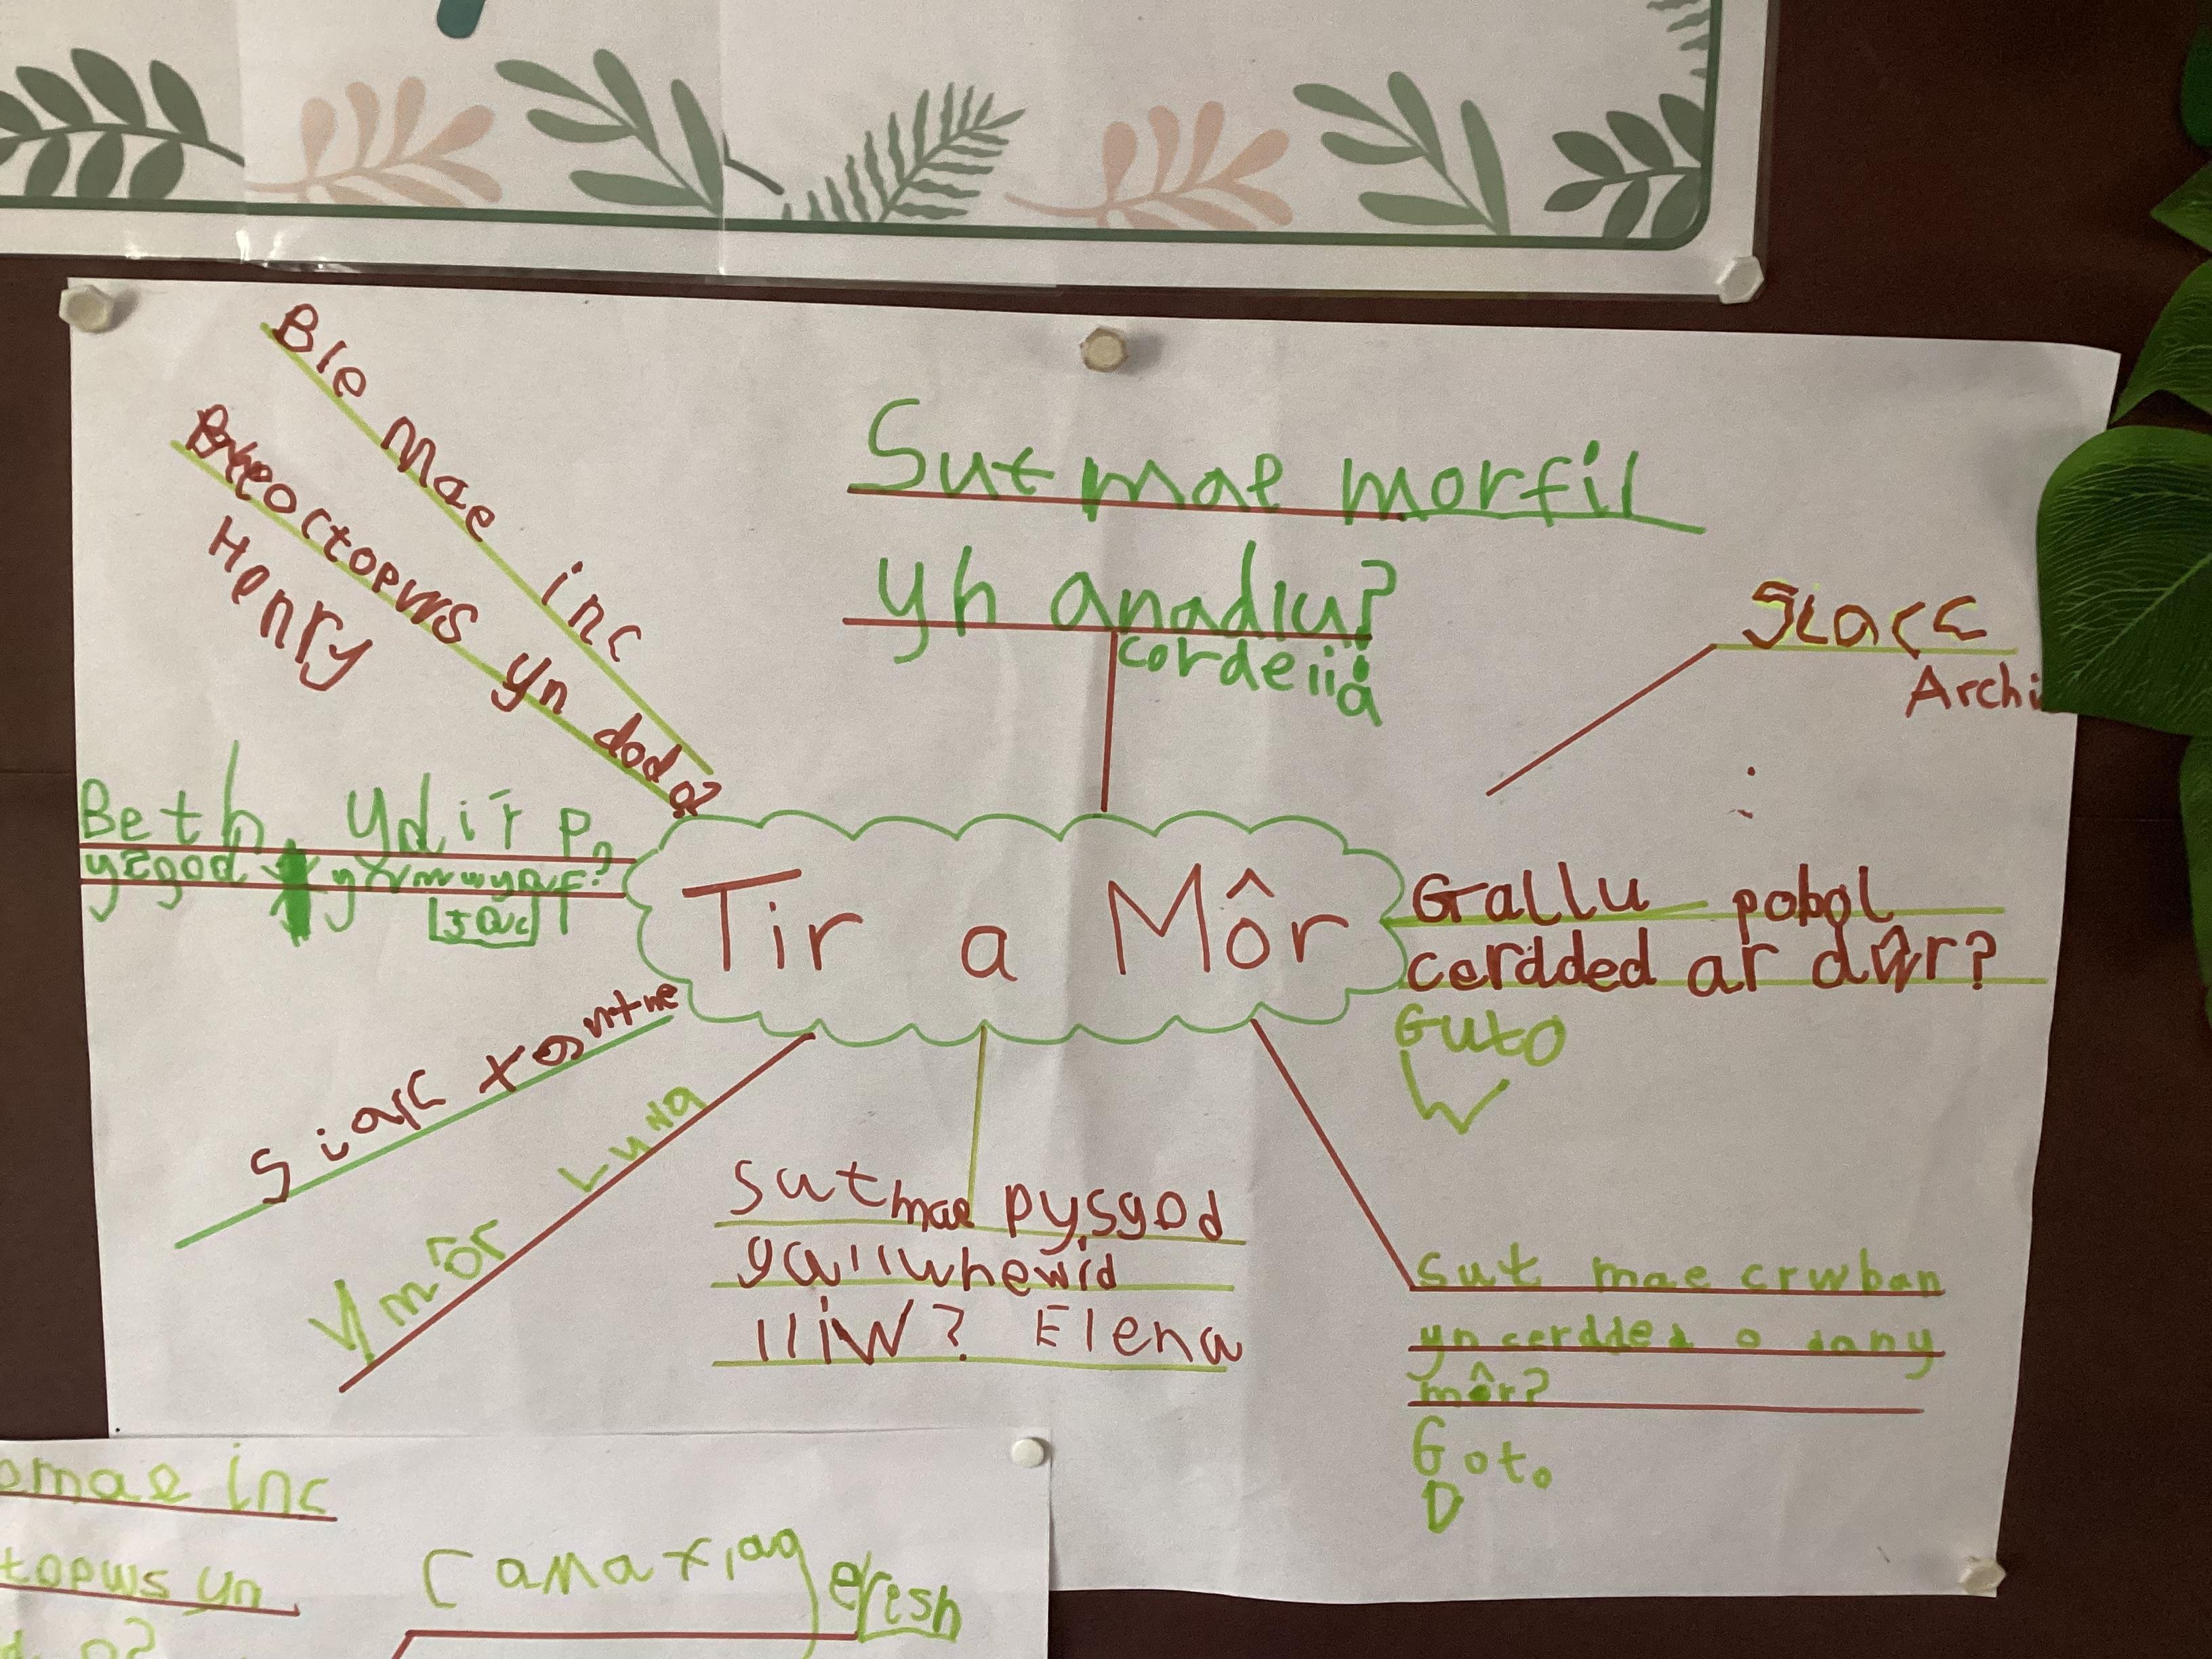 Ble mae inc
octopws yn dod
o?
Henry
Sut mae morfil
yn anadlu?
cordelia
Siarc
Archi
Beth ydi'r p
ysgod mwyaf?
Jac
Tir a Môr
Gallu pobol
cerdded ar dŵr?
Guto
W
Siarc
Y môr Luna
Sut mae pysgod
gallu newid
lliw? Elena
Sut mae crwban
yn cerdded o dan y
môr?
Goto
D
omae inc
topws yn
o?